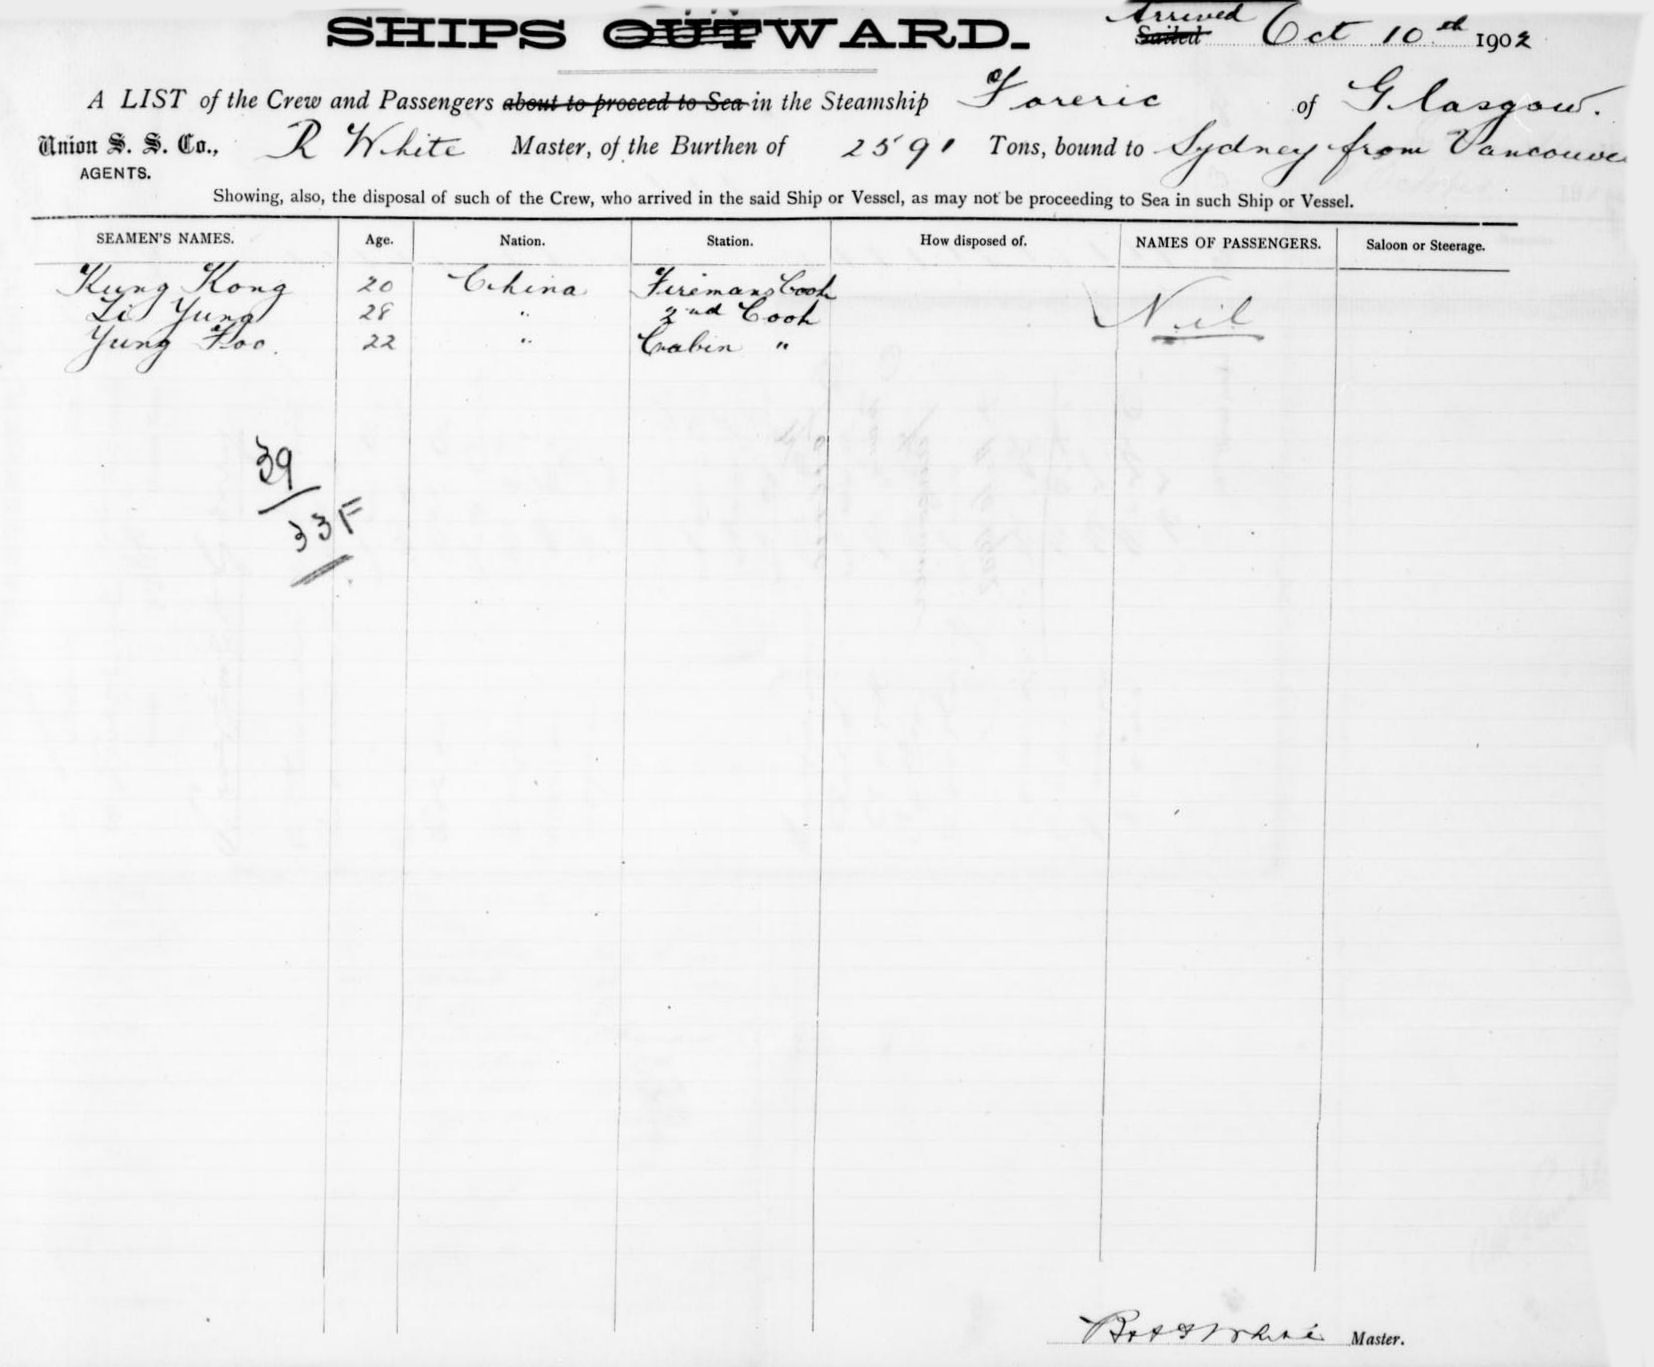 SHIPS OUTWARD. Arrived
Sailed Oct 10th 1902
A LIST of the Crew and Passengers about to proceed to Sea in the Steamship Foreric of Glasgow.
Union S. S. Co., R White Master, of the Burthen of 2591 Tons, bound to Sydney from Vancouver
AGENTS.
Showing, also, the disposal of such of the Crew, who arrived in the said Ship or Vessel, as may not be proceeding to Sea in such Ship or Vessel.
SEAMEN'S NAMES. Age. Nation. Station. How disposed of. NAMES OF PASSENGERS. Saloon or Steerage.
Kung Kong 20 China Firemans Cook
Li Yung 28 " 2nd Cook Nil
Yung Foo. 22 " Cabin "
39
33 F
White Master.